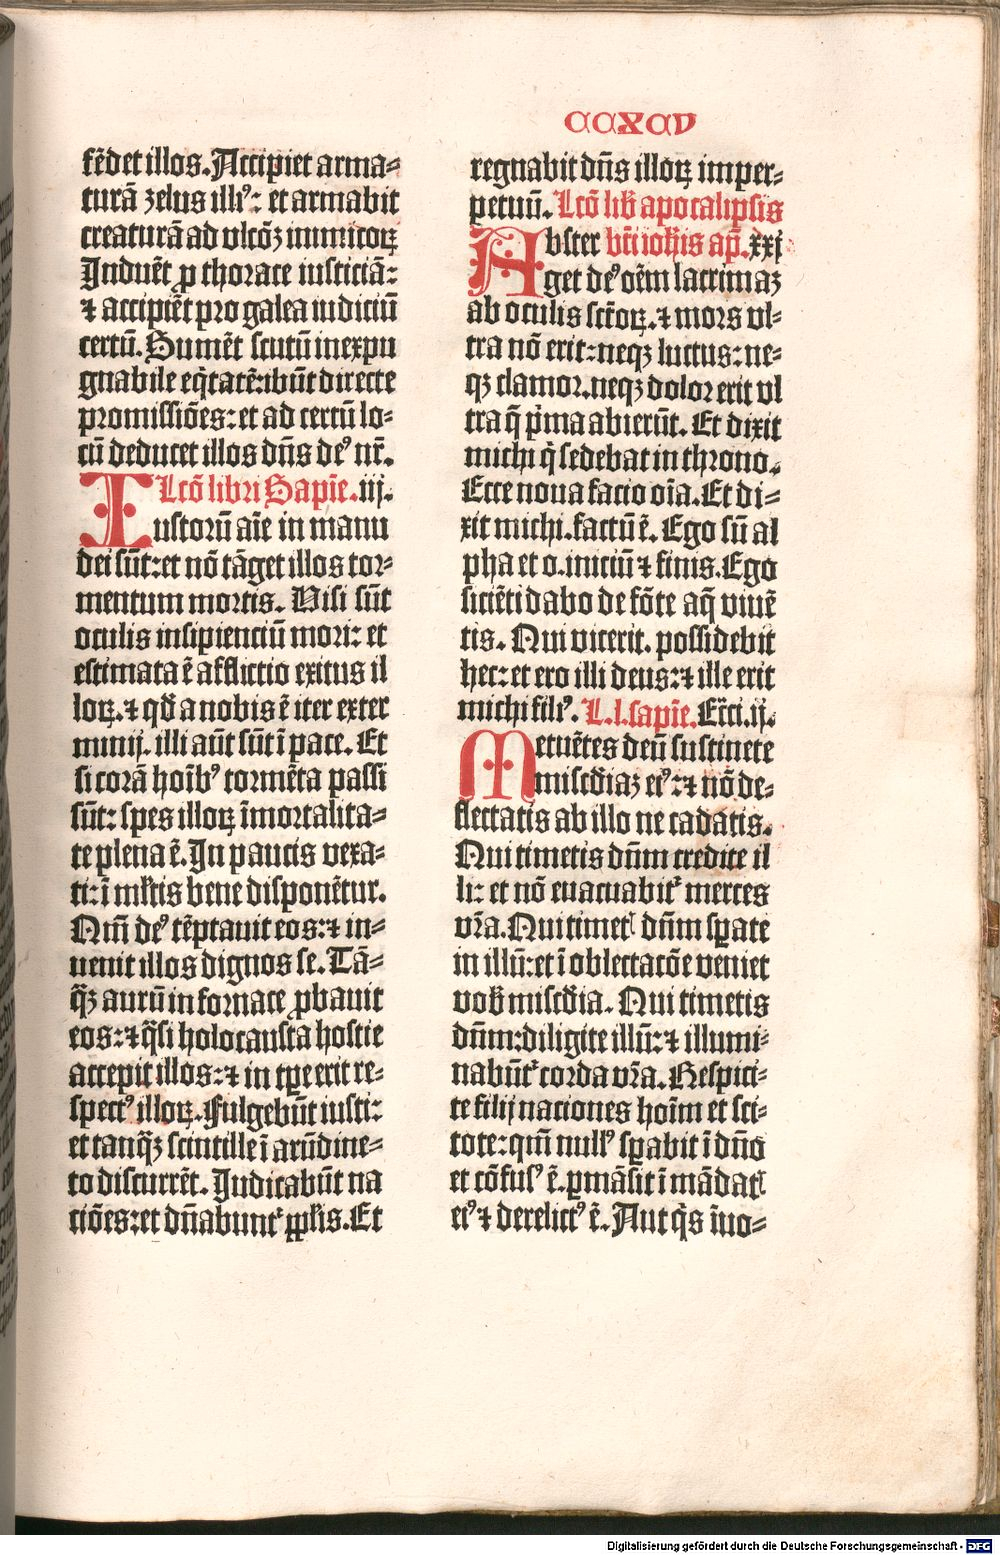 CCXCV
fēdet illos. Accipiet arma⸗
turā zelus illiꝰ: et armabit
creaturā ad vlcōꝫ inimicoꝝ
Induēt ꝓ thorace iusticiā:
⁊ accipiēt pro galea iudiciū
certū. Sumēt scutū inexpu
gnabile eq̄tatē: ibūt directe
promissiōes: et ad certū lo⸗
cū deducet illos dn̄s deꝰ nr̄.
Lcō libri Sapīe. iij.
Iustorū aīe in manu
dei sūt: et nō tāget illos tor⸗
mentum mortis. Visi sūt
oculis insipienciū mori: et
estimata ē afflictio exitus il
loꝝ. ⁊ qđ a nobis ē iter exter
minij. illi aūt sūt ī pace. Et
si corā hoīb᾽ tormēta passi
sūt: spes illoꝝ īmortalita⸗
te plena ē. In paucis vexa⸗
ti: ī ml̄tis bene disponētur.
Qm̄ deꝰ tēptauit eos: ⁊ in⸗
uenit illos dignos se. Tā⸗
q̄ꝫ aurū in fornace ꝓbauit
eos: ⁊ q̄si holocausta hostie
accepit illos: ⁊ in tꝑe erit re⸗
spectꝰ illoꝝ. Fulgebūt iusti:
et tanq̄ꝫ scintille ī arūdine⸗
to discurrēt. Iudicabūt na
tiōes: et dn̄abunt᾽ ppl̄is. Et
regnabit dn̄s illoꝝ imper⸗
petuū. Lcō lib̄ apocalipsis
Abster bt̄i ioh̄is ap̄. xxj
get deꝰ oēm lacrimaꝫ
ab oculis sct̄oꝝ. ⁊ mors vl⸗
tra nō erit: neqꝫ luctus: ne⸗
qꝫ clamor. neqꝫ dolor erit vl
tra q̄ pͥma abierūt. Et dixit
michi q̇ sedebat in throno.
Ecce noua facio oīa. Et di⸗
xit michi. factū ē. Ego sū al
pha et o. iniciū ⁊ finis. Ego
siciēti dabo de fōte aq̄ viuē
tis. Qui vicerit. possidebit
hec: et ero illi deus: ⁊ ille erit
michi filiꝰ. L. l. sapīe. Ecc̄i. ij.
Metuētes deū sustinete
misc̄diaꝫ eiꝰ: ⁊ nō de⸗
flectatis ab illo ne cadatis.
Qui timetis dn̄m credite il
li: et nō euacuabit᾽ merces
vr̄a. Qui timetꝭ dn̄m sꝑate
in illū: et ī oblectacōe veniet
vob̄ misc̄dia. Qui timetis
dn̄m: diligite illū: ⁊ illumi⸗
nabūt᾽ corda vr̄a. Respici⸗
te filij naciones hoīm et sci⸗
tote: qm̄ nullꝰ sꝑabit ī dn̄o
et cōfusꝰ ē. ꝑmāsit ī mādatꝭ
eiꝰ ⁊ derelictꝰ ē. Aut q̇s īuo⸗
Digitalisierung gefördert durch die Deutsche Forschungsgemeinschaft - DFG